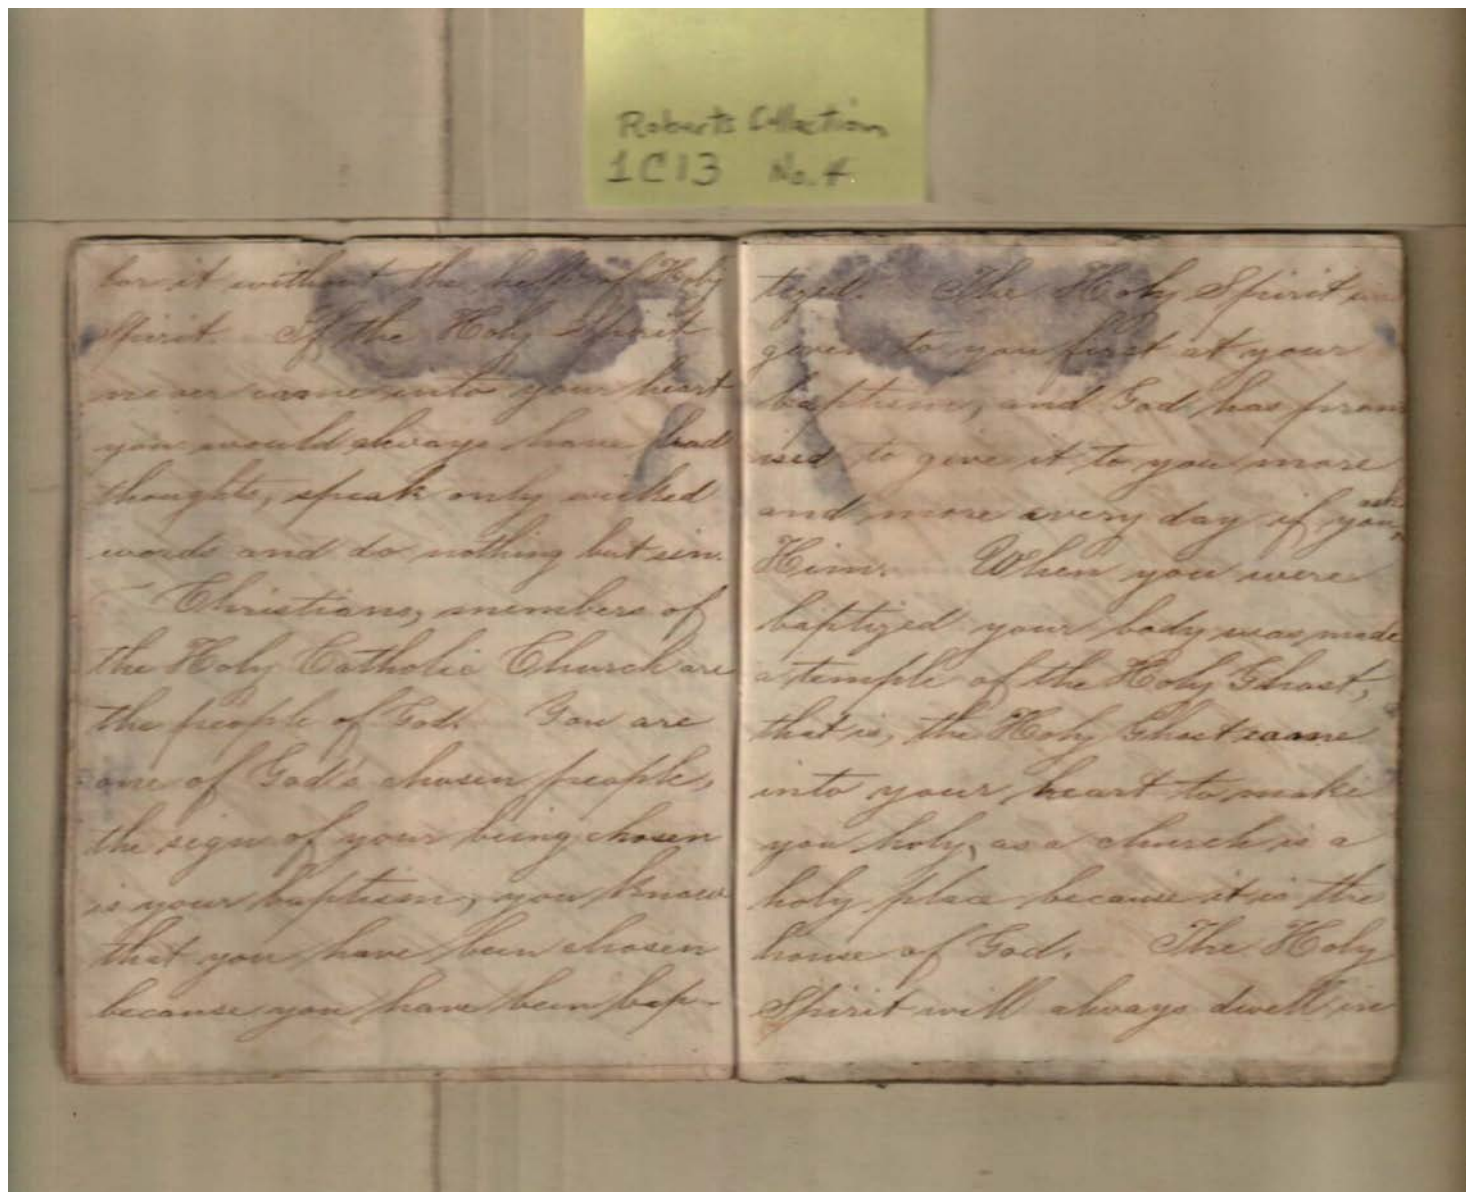 Roberts Collection
1C13 No. 4
for it without the help of Holy
Spirit. If the Holy Spirit
never came into your heart
you would always have bad
thoughts, speak only wicked
words and do nothing but sin.
Christians, members of
the Holy Catholic Church are
the people of God. You are
one of God's chosen people,
the sign of your being chosen
is your baptism, you know
that you have been chosen
because you have been bap-
tized. The Holy Spirit was
given to you first at your
baptism, and God has prom
ised to give it to you more
and more every day if you ask
Him. When you were
baptized your body was made
a temple of the Holy Ghost,
that is, the Holy Ghost came
into your heart to make
you holy, as a church is a
holy place because it is the
house of God. The Holy
Spirit will always dwell in